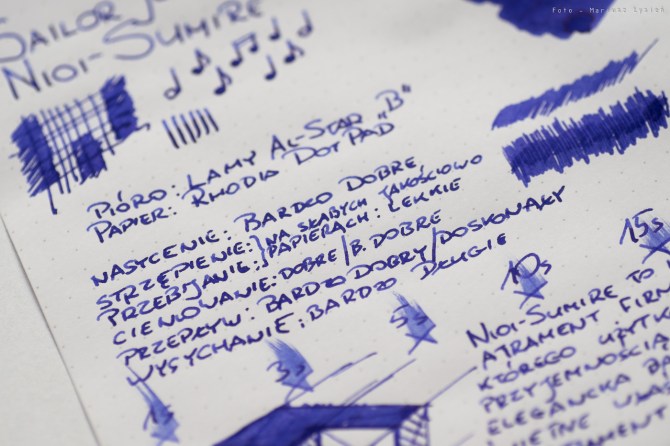 SAILOR
NIOI-SUMIRE
PIÓRO: LAMY AL-STAR "B"
PAPIER: RHODIA DOT PAD
NASYCENIE: BARDZO DOBRE
STRZĘPIENIE: } NA SŁABYCH JAKOŚCIOWO
PRZEBIJANIE: } PAPIERACH: LEKKIE
CIENIOWANIE: DOBRE/B. DOBRE
PRZEPŁYW: BARDZO DOBRY/DOSKONAŁY
WYSYCHANIE: BARDZO DŁUGIE
1s
3s
5s
10s
15s
NIOI-SUMIRE TO
ATRAMENT FIRM
KTÓREGO UŻYTK
PRZYJEMNOŚCIĄ
ELEGANCKA BA
Foto - Mariusz Lysiak